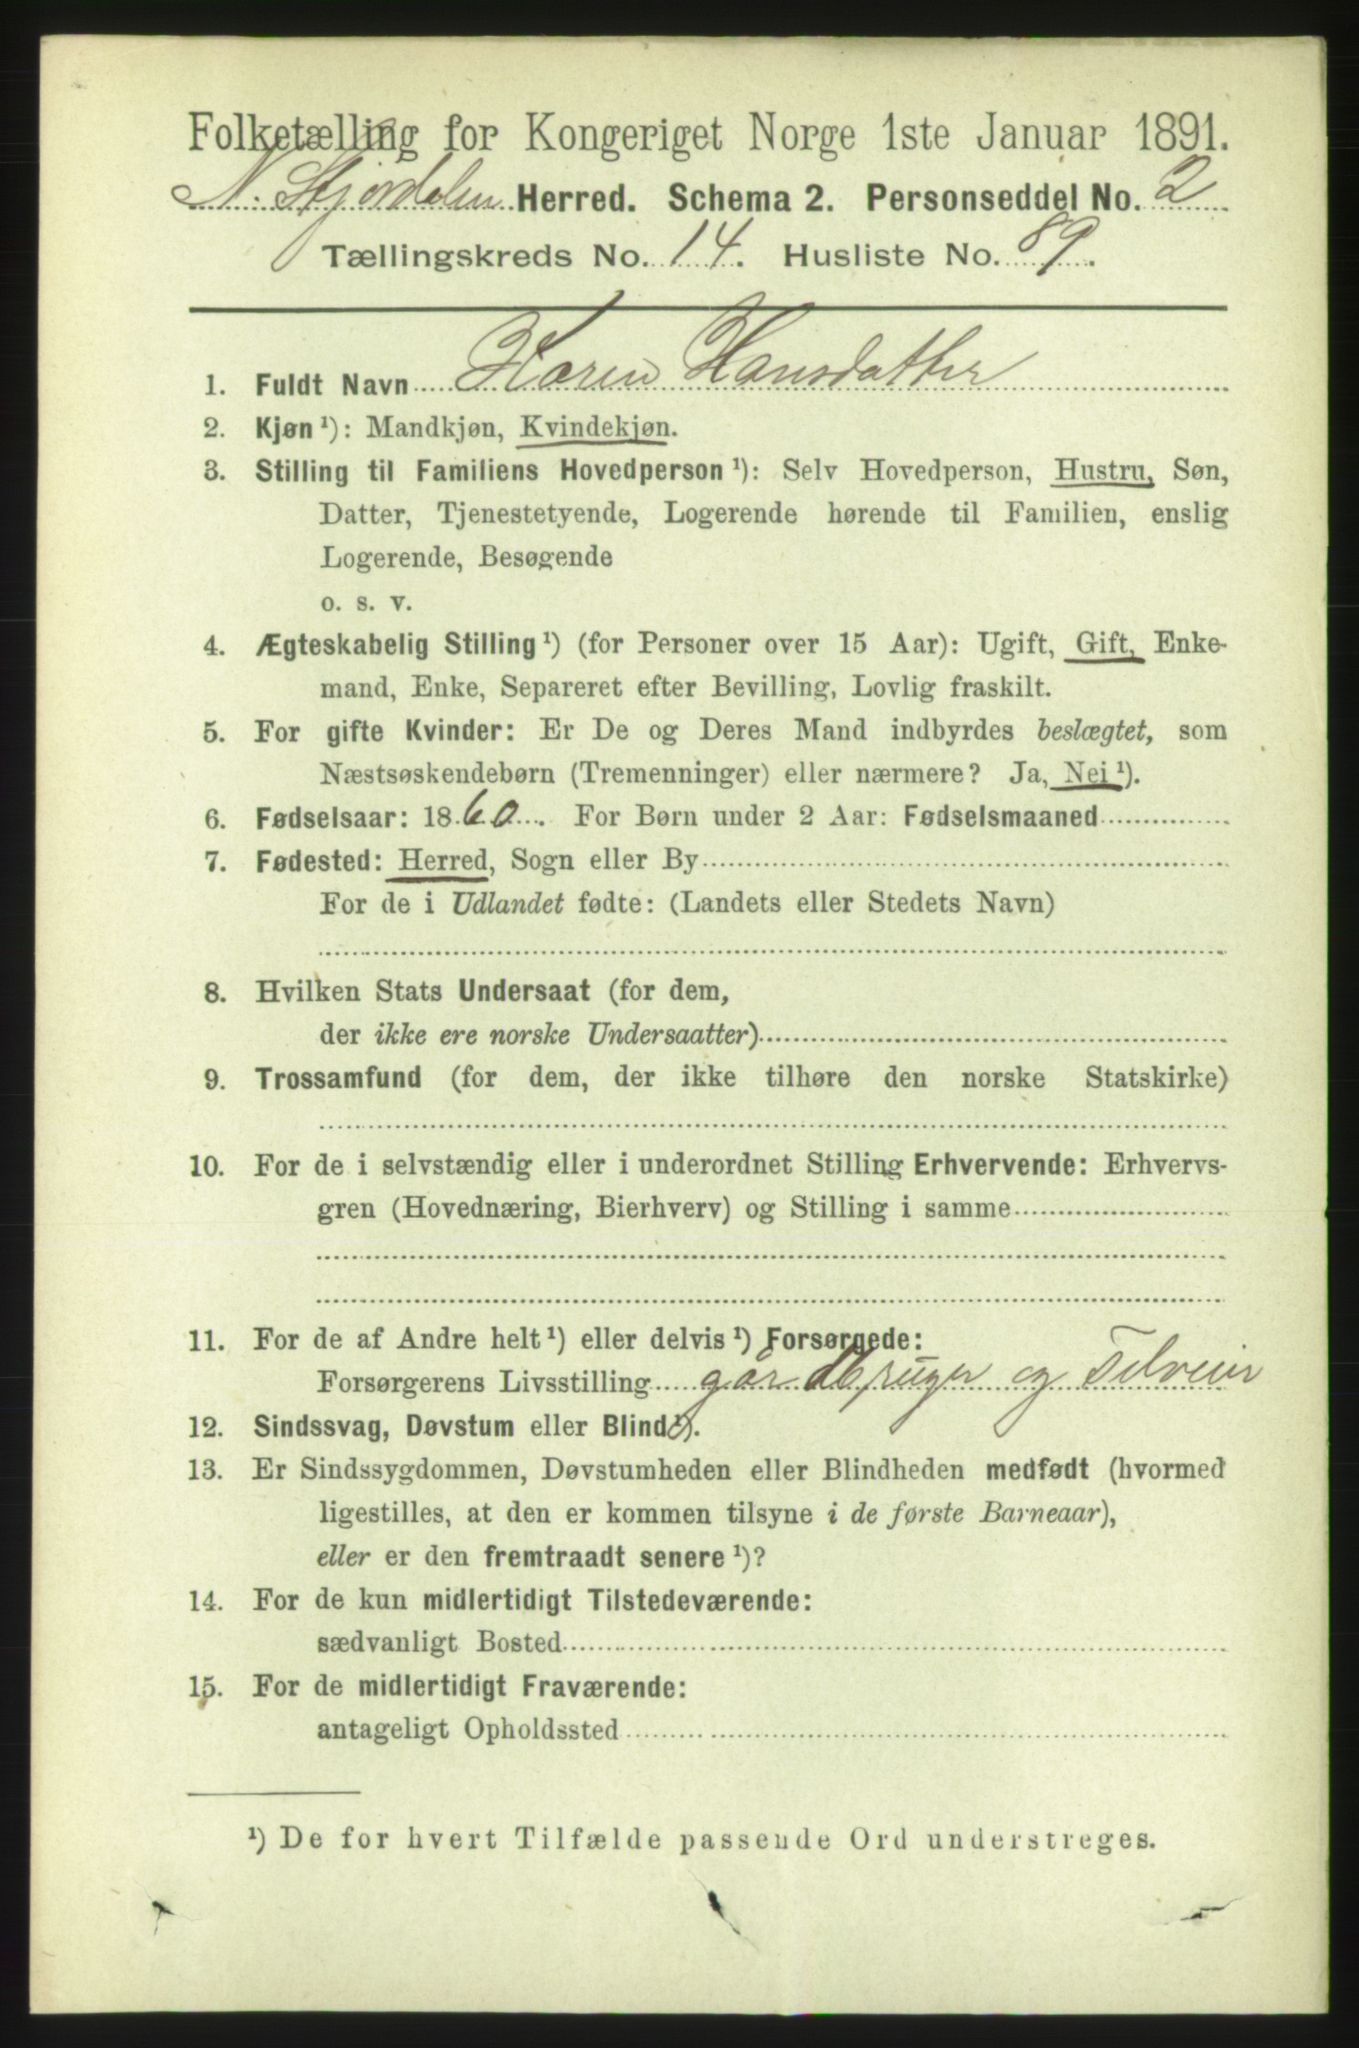 Folketælling for Kongeriget Norge 1ste Januar 1891.
N. Stjørdalen Herred. Schema 2. Personseddel No. 2
Tællingskreds No. 14. Husliste No. 89.
1. Fuldt Navn Karen Hansdatter
2. Kjøn ¹): Mandkjøn, Kvindekjøn.
3. Stilling til Familiens Hovedperson ¹): Selv Hovedperson, Hustru, Søn,
Datter, Tjenestetyende, Logerende hørende til Familien, enslig
Logerende, Besøgende
o. s. v.
4. Ægteskabelig Stilling ¹) (for Personer over 15 Aar): Ugift, Gift, Enke-
mand, Enke, Separeret efter Bevilling, Lovlig fraskilt.
5. For gifte Kvinder: Er De og Deres Mand indbyrdes beslægtet, som
Næstsøskendebørn (Tremenninger) eller nærmere? Ja, Nei ¹).
6. Fødselsaar: 1860. For Børn under 2 Aar: Fødselsmaaned
7. Fødested: Herred, Sogn eller By
For de i Udlandet fødte: (Landets eller Stedets Navn)
8. Hvilken Stats Undersaat (for dem,
der ikke ere norske Undersaatter)
9. Trossamfund (for dem, der ikke tilhøre den norske Statskirke)
10. For de i selvstændig eller i underordnet Stilling Erhvervende: Erhvervs-
gren (Hovednæring, Bierhverv) og Stilling i samme
11. For de af Andre helt ¹) eller delvis ¹) Forsørgede:
Forsørgerens Livsstilling gårdbruger og Selveier
12. Sindssvag, Døvstum eller Blind ¹).
13. Er Sindssygdommen, Døvstumheden eller Blindheden medfødt (hvormed
ligestilles, at den er kommen tilsyne i de første Barneaar),
eller er den fremtraadt senere ¹)?
14. For de kun midlertidigt Tilstedeværende:
sædvanligt Bosted
15. For de midlertidigt Fraværende:
antageligt Opholdssted
¹) De for hvert Tilfælde passende Ord understreges.